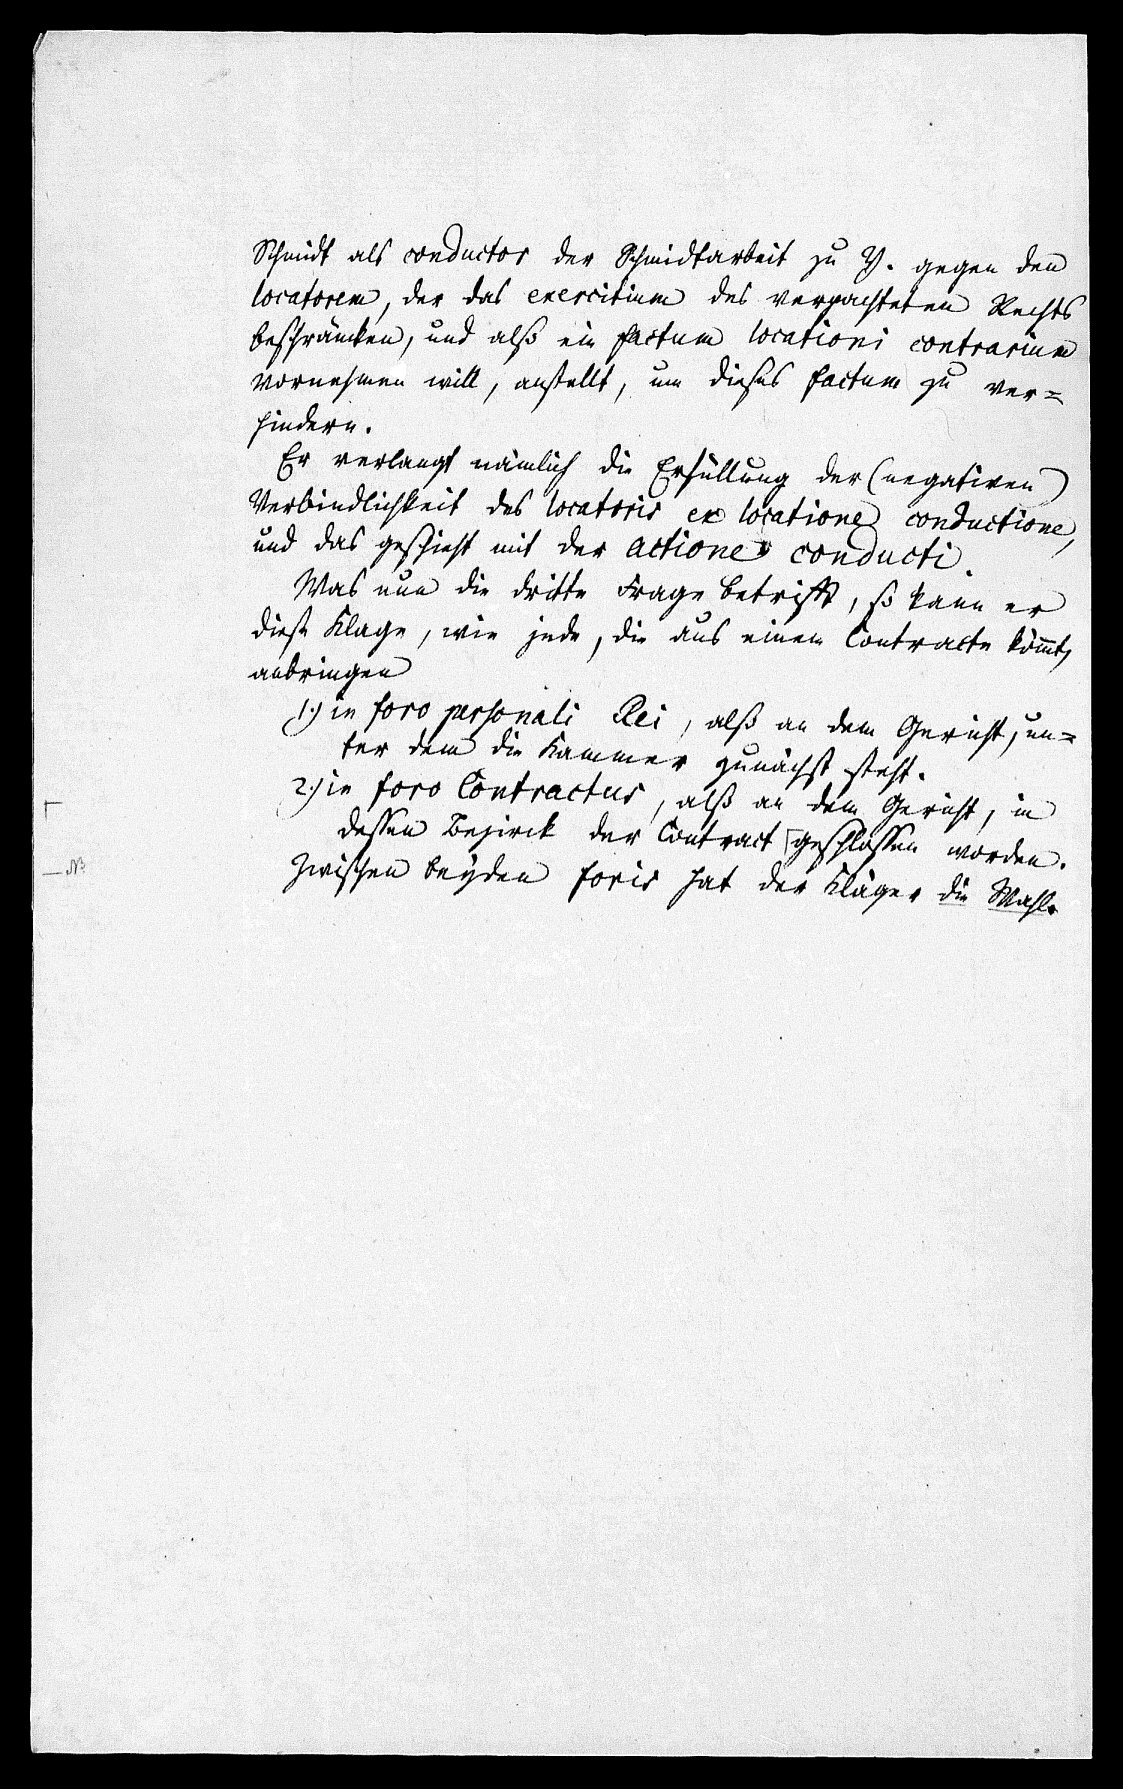 Schmidt als conductor der Schmidtarbeit zu Y. gegen den
locatorem, der das exercitium des verpachteten Rechts
beschräncken, und alsß ein factum locationi contrarium
vornehmen will, anstellt, um dieses factum zu ver=
hindern.
Er verlangt nämlich die Erfüllung der (negativen)
Verbindlichkeit des locatoris ex locatione conductione,
und das geschieht mit der actione conducti.
Was nun die dritte Frage betrifft, so kann er
diese Klage, wie jede, die aus einem Contracte kömmt,
anbringen
1.) in foro personali Rei, alß an dem Gericht, un=
ter dem die Kammer zunächst steht.
2.) in foro Contractus, alß an dem Gericht, in
dessen Bezirck der Contract geschlossen worden.
NB
Zwischen beyden foris hat der Kläger die Wahl.